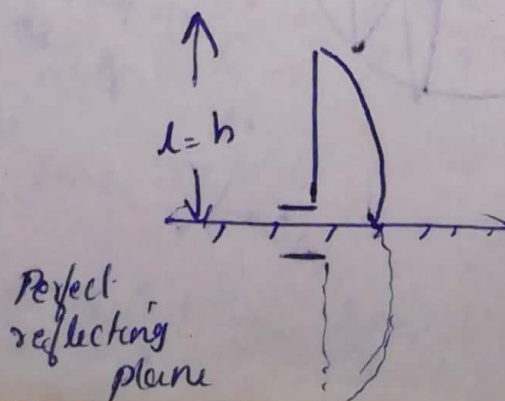 l = h
Perfect
reflecting
plane